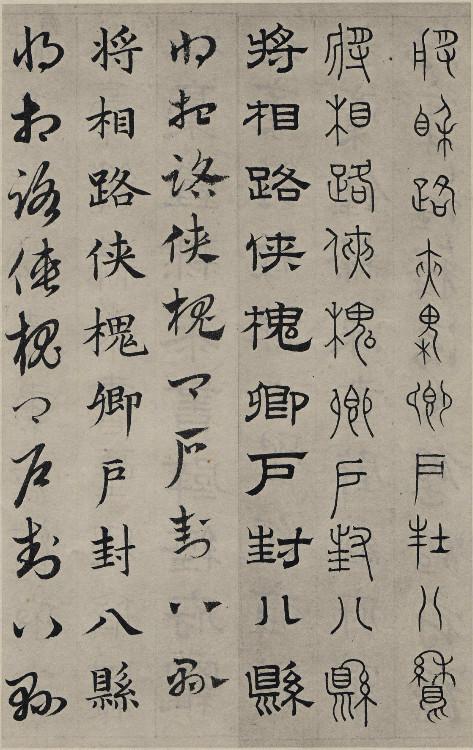 將相路俠槐卿戶封八縣
將相路俠槐卿戶封八縣
將相路俠槐卿戶封八縣
將相路俠槐卿戶封八縣
將相路俠槐卿戶封八縣
將相路俠槐卿戶封八縣